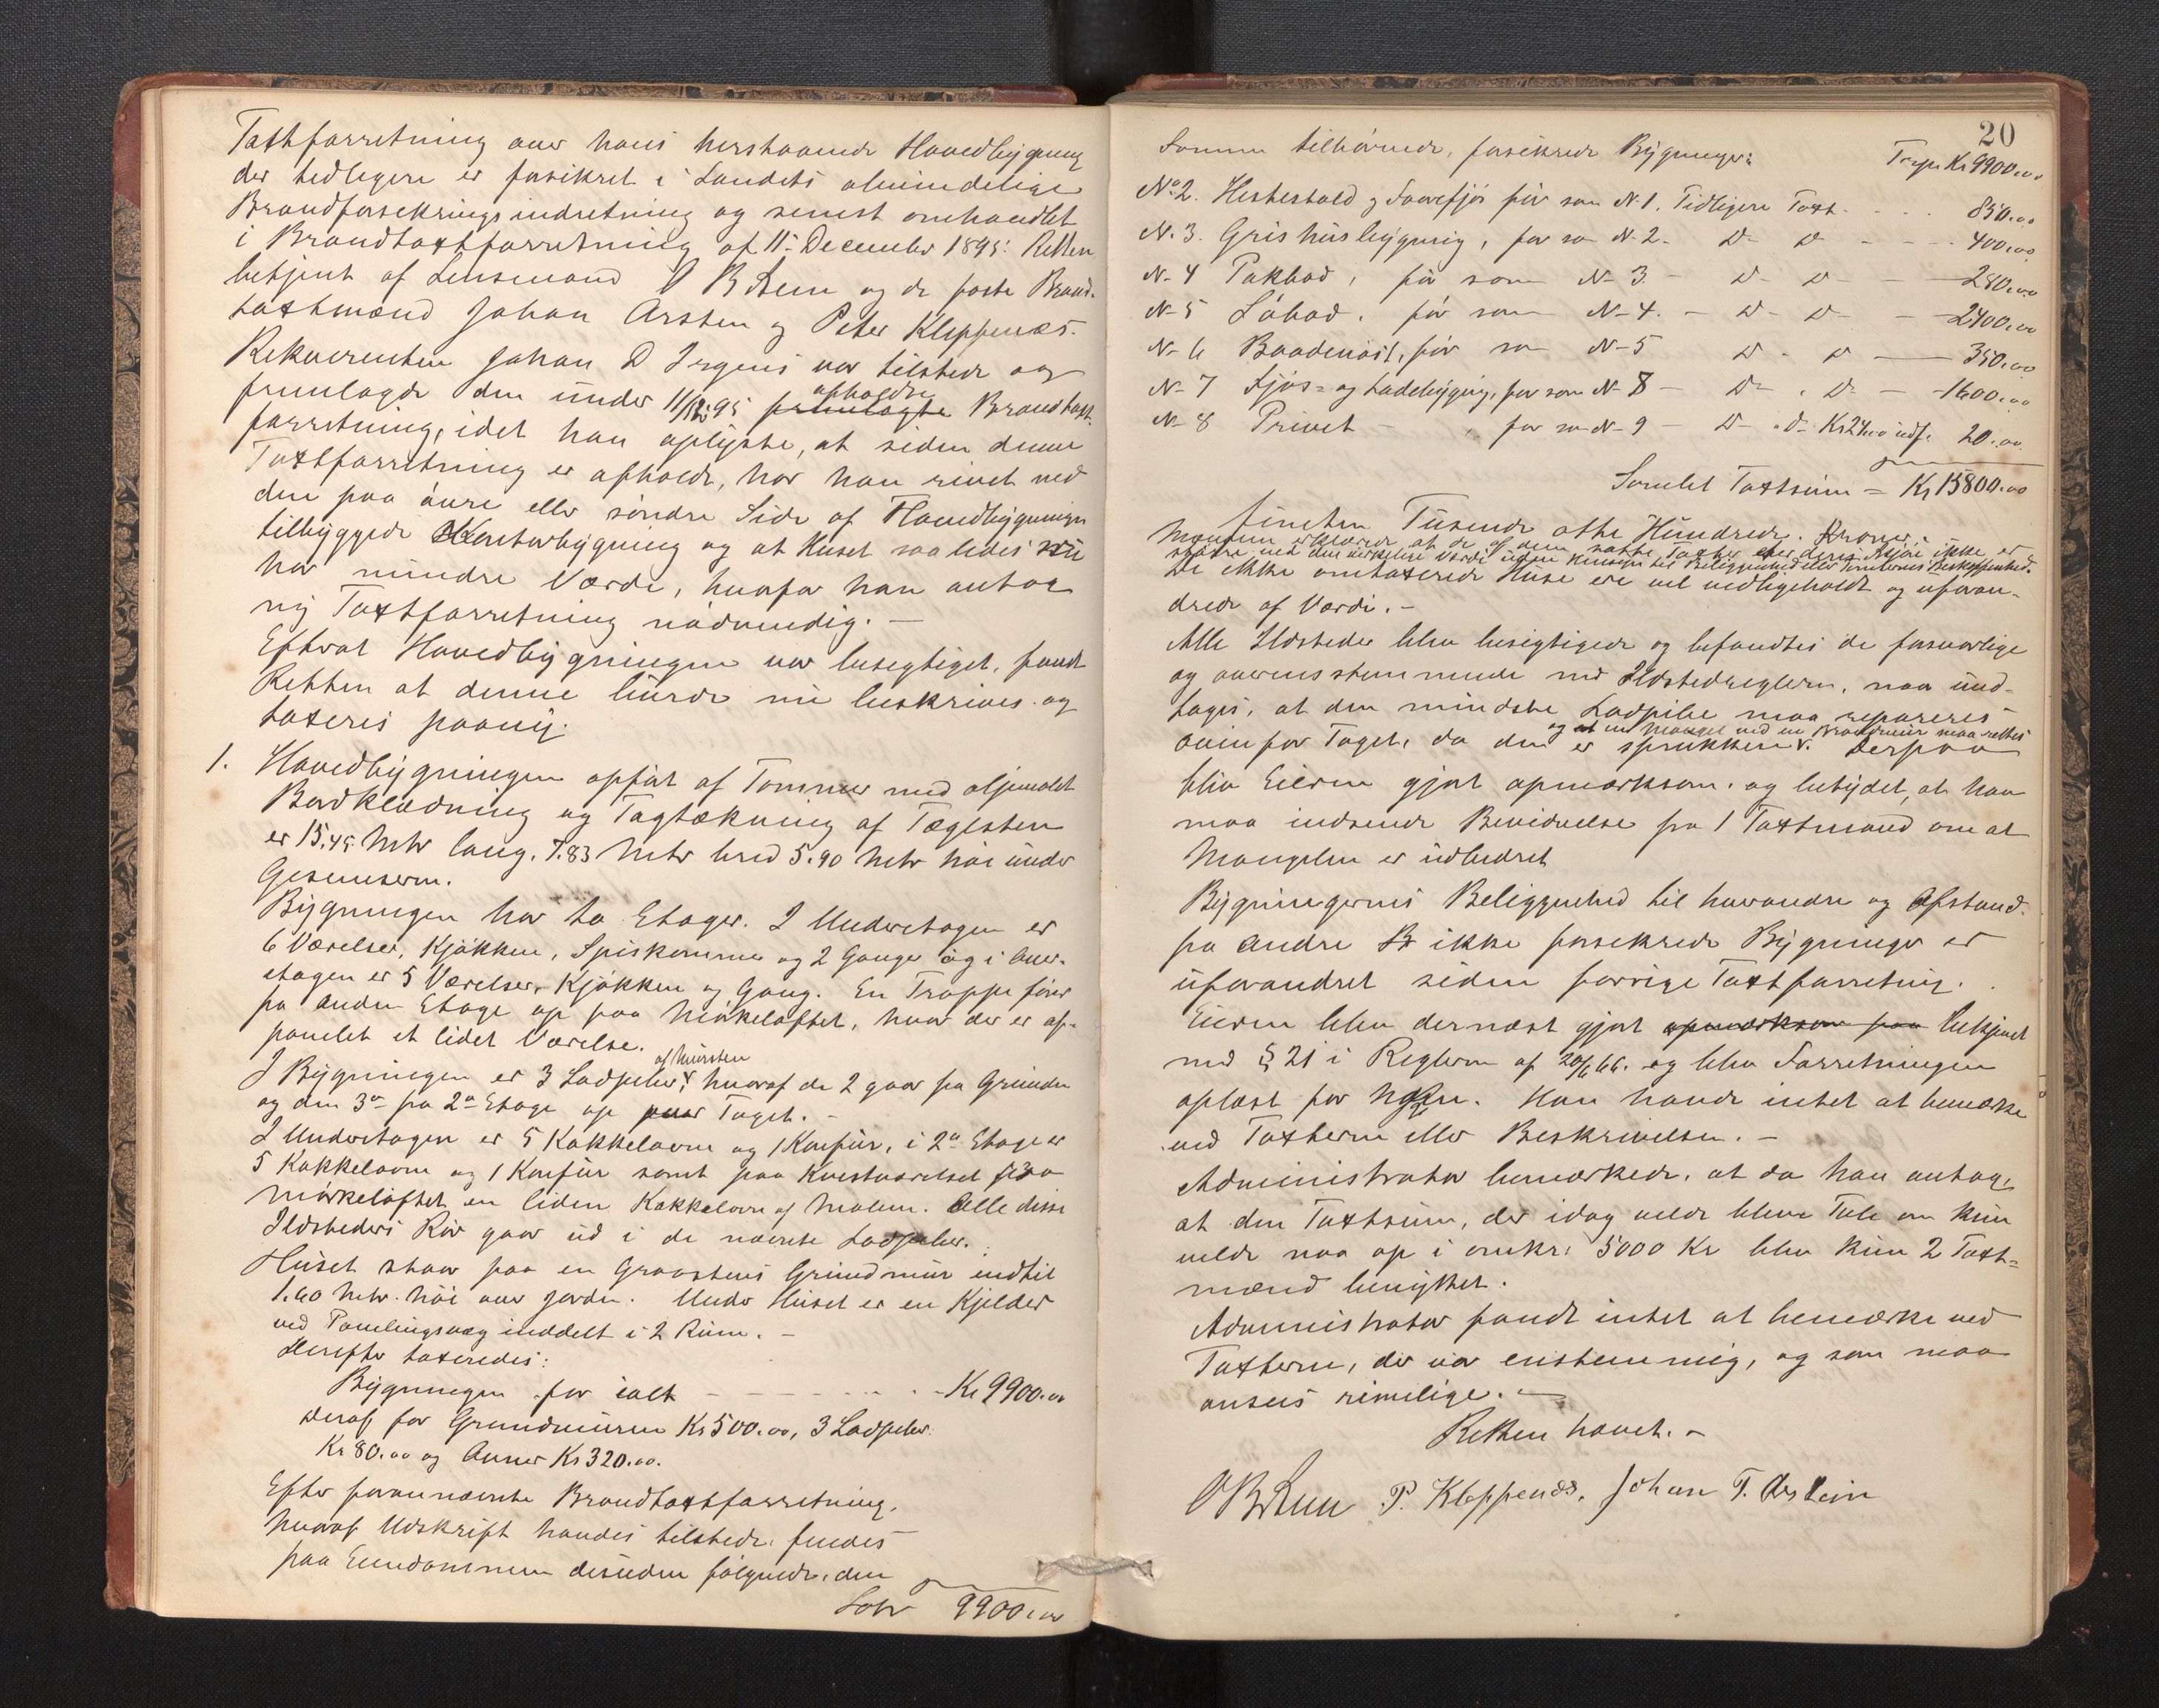 Taxtforretning over hans herstaaende Hovedbygning
der tidligere er forsikret i Landets almindelige
Brandforsekringsindretning og senest omhandlet
i Brandtaxtforretning af 11te December 1895. Retten
betjent af Lensmand O B Lem og de faste Brand-
taxtmænd Johan Arsten og Peter Kleppenæs.
Rekvirenten Johan D Irgens var tilstede og
fremlagde den under 11/12 95 afholdte Brandtaxt-
forretning, idet han oplyste, at siden denne
Taxtforretning er afholdt, har han revet ned
den paa øvre eller søndre Side af Hovedbygningen
tilbyggede Kontorbygning og at Huset saaledes nu
har mindre Værdi, hvorfor han antog
ny Taxtforretning nødvendig. –
Efterat Hovedbygningen var besegtiget, fandt
Retten at denne burde nu beskrives og
taxeres paany.
1. Hovedbygningen opført af Tømmer med oljemalet
Bordklædning og Tagtækning af Tægelsten
er 15.45 Mtr lang, 7.83 Mtr bred 5.90 Mtr høi under
Gesemserne.
Bygningen har to Etager. I Underetagen er
6 Værelser, Kjøkken, Spiskammer og 2 Gange og i Over-
etagen er 5 Værelser, Kjøkken og Gang. En Trappe fører
fra anden Etage op paa Mørkeloftet, hvor der er op-
panelet et lidet Værelse.
I Bygningen er 3 Ladpiber, af Mursten hvoraf de 2 gaar fra Grunden
og den 3de fra 2den Etage op over Taget. –
I Underetagen er 5 Kakkelovne og 1 Komfur, i 2den Etage er
5 Kakkelovne og 1 Komfur samt paa Kvistværelset paa
Mørkeloftet en liden Kakkelovn af Malm. Alle disse
Ildsteders Rør gaar ud i de nævnte Ladpiber.
Huset staar paa en Graastens Grundmur indtil
1.60 Mtr. høi over Jorden. Under Huset er en Kjelder
ved Tømlingsvæg inddelt i 2 Rum. –
Derefter taxeredes:
Bygningen for ialt – – – – – Kr 9900.00
Deraf for Grundmuren Kr 500.00, 3 Ladpiber
Kr 80.00 og Ovner Kr 320.00.
Efter forannævnte Brandtaxtforretning,
hvoraf Udskrift havdes tilstede, findes
paa Eiendommen desuden følgende, den
Latr 9900.00
20
Samme tilhørende, forsekrede Bygninger: Trspr. Kr 9900.00
No 2. Hestestald og Faarefjøs før som N. 1. Tidligere Taxt - - - 850.00
N. 3. Grishusbygning, før som N. 2 - Do Do - - - 400.00
N. 4 Pakbod, før som N. 3 - Do Do - - 280.00
N. 5 Løbod, før som N. 4. - Do - Do - 2400.00
N. 6 Baadenøst, før som N. 5 Do - Do - 350.00
N. 7 Fjøs- og Ladebygning, før som N. 8 - Do - Do - 1600.00
N. 8 Privet - , før som N. 9 - Do - Do Kr 24.00 udf. 20.00
Samlet Taxtsum = Kr 15800.00
femten Tusende otte Hundrede Kroner.
Mændene erklærede at de af dem satte Taxter efter deres Skjøn ikke er
større end den virkelige Værdi uden Hensyn til Beliggenhed eller Tomternes Beskaffenhed.
De ikke omtaxerede Huse ere vel vedligeholdt og uforan-
drede af Værdi. –
Alle Ildsteder blev besigtigede og befandtes de forsvarlige
og overensstemmende med Ildstedreglerne, naar und-
tages, at den mindste Ladpibe maa repareres
og at en Mangel ved en Brandmur maa rettes
ovenfor Taget, da den er sprukken. Derpaa
blev Eieren gjort opmærksom og betydet, at han
maa indsende Bevidnelse fra 1 Taxtmand om at
Mangelen er udbedret
Bygningernes Beliggenhed til hverandre og Afstand
fra andre ikke forsekrede Bygninger er
uforandret siden forrige Taxtforretning.
Eieren blev dernæst gjort opmærksom paa bekjent
med § 21 i Reglerne af 20/6 66. og blev Forretningen
oplæst for ham. Han havde intet at bemærke
ved Taxterne eller Beskrivelsen. –
Administrator bemærkede, at da han antog,
at den Taxtsum, der idag vilde blive Tale om kun
vilde naa op i omkr. 5000 Kr blev kun 2 Taxt-
mænd benyttet.
Administrator fandt intet at bemærke ved
Taxterne, der var enstemmig, og som maa
ansees rimelige. –
Retten hævet. –
O B Lem P. Kleppenæs, Johan T. Arstein